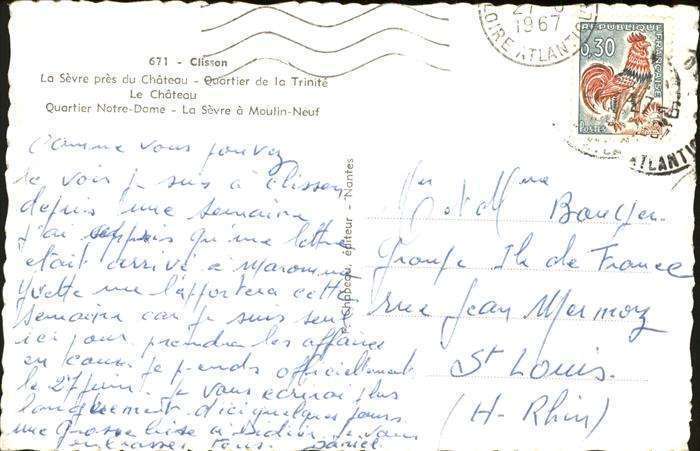 671 - Clisson
La Sèvre près du Château - Quartier de la Trinité
Le Château
Quartier Notre-Dame - La Sèvre à Moulin-Neuf
1967
LOIRE ATLANTIQUE
REPUBLIQUE
FRANÇAISE
0,30
POSTES
ATLANTIQUE
Chapeau, éditeur - Nantes
Comme vous pouvez
le voir je suis à Clisson
depuis une semaine
J'ai appris qu'une lettre
était arrivé à Maromme
Yvette me l'apportera cette
semaine car je suis seul
ici pour prendre les affaires
en cours je prends officiellement
le 27 juin. je vous écrirai plus
longuement d'ici quelques jours
une grosse bise à Didier je vous
embrasse tous. Daniel
Mr et Mme
Groupe Ile de France
rue Jean Mermoz
St Louis.
(H-Rhin)